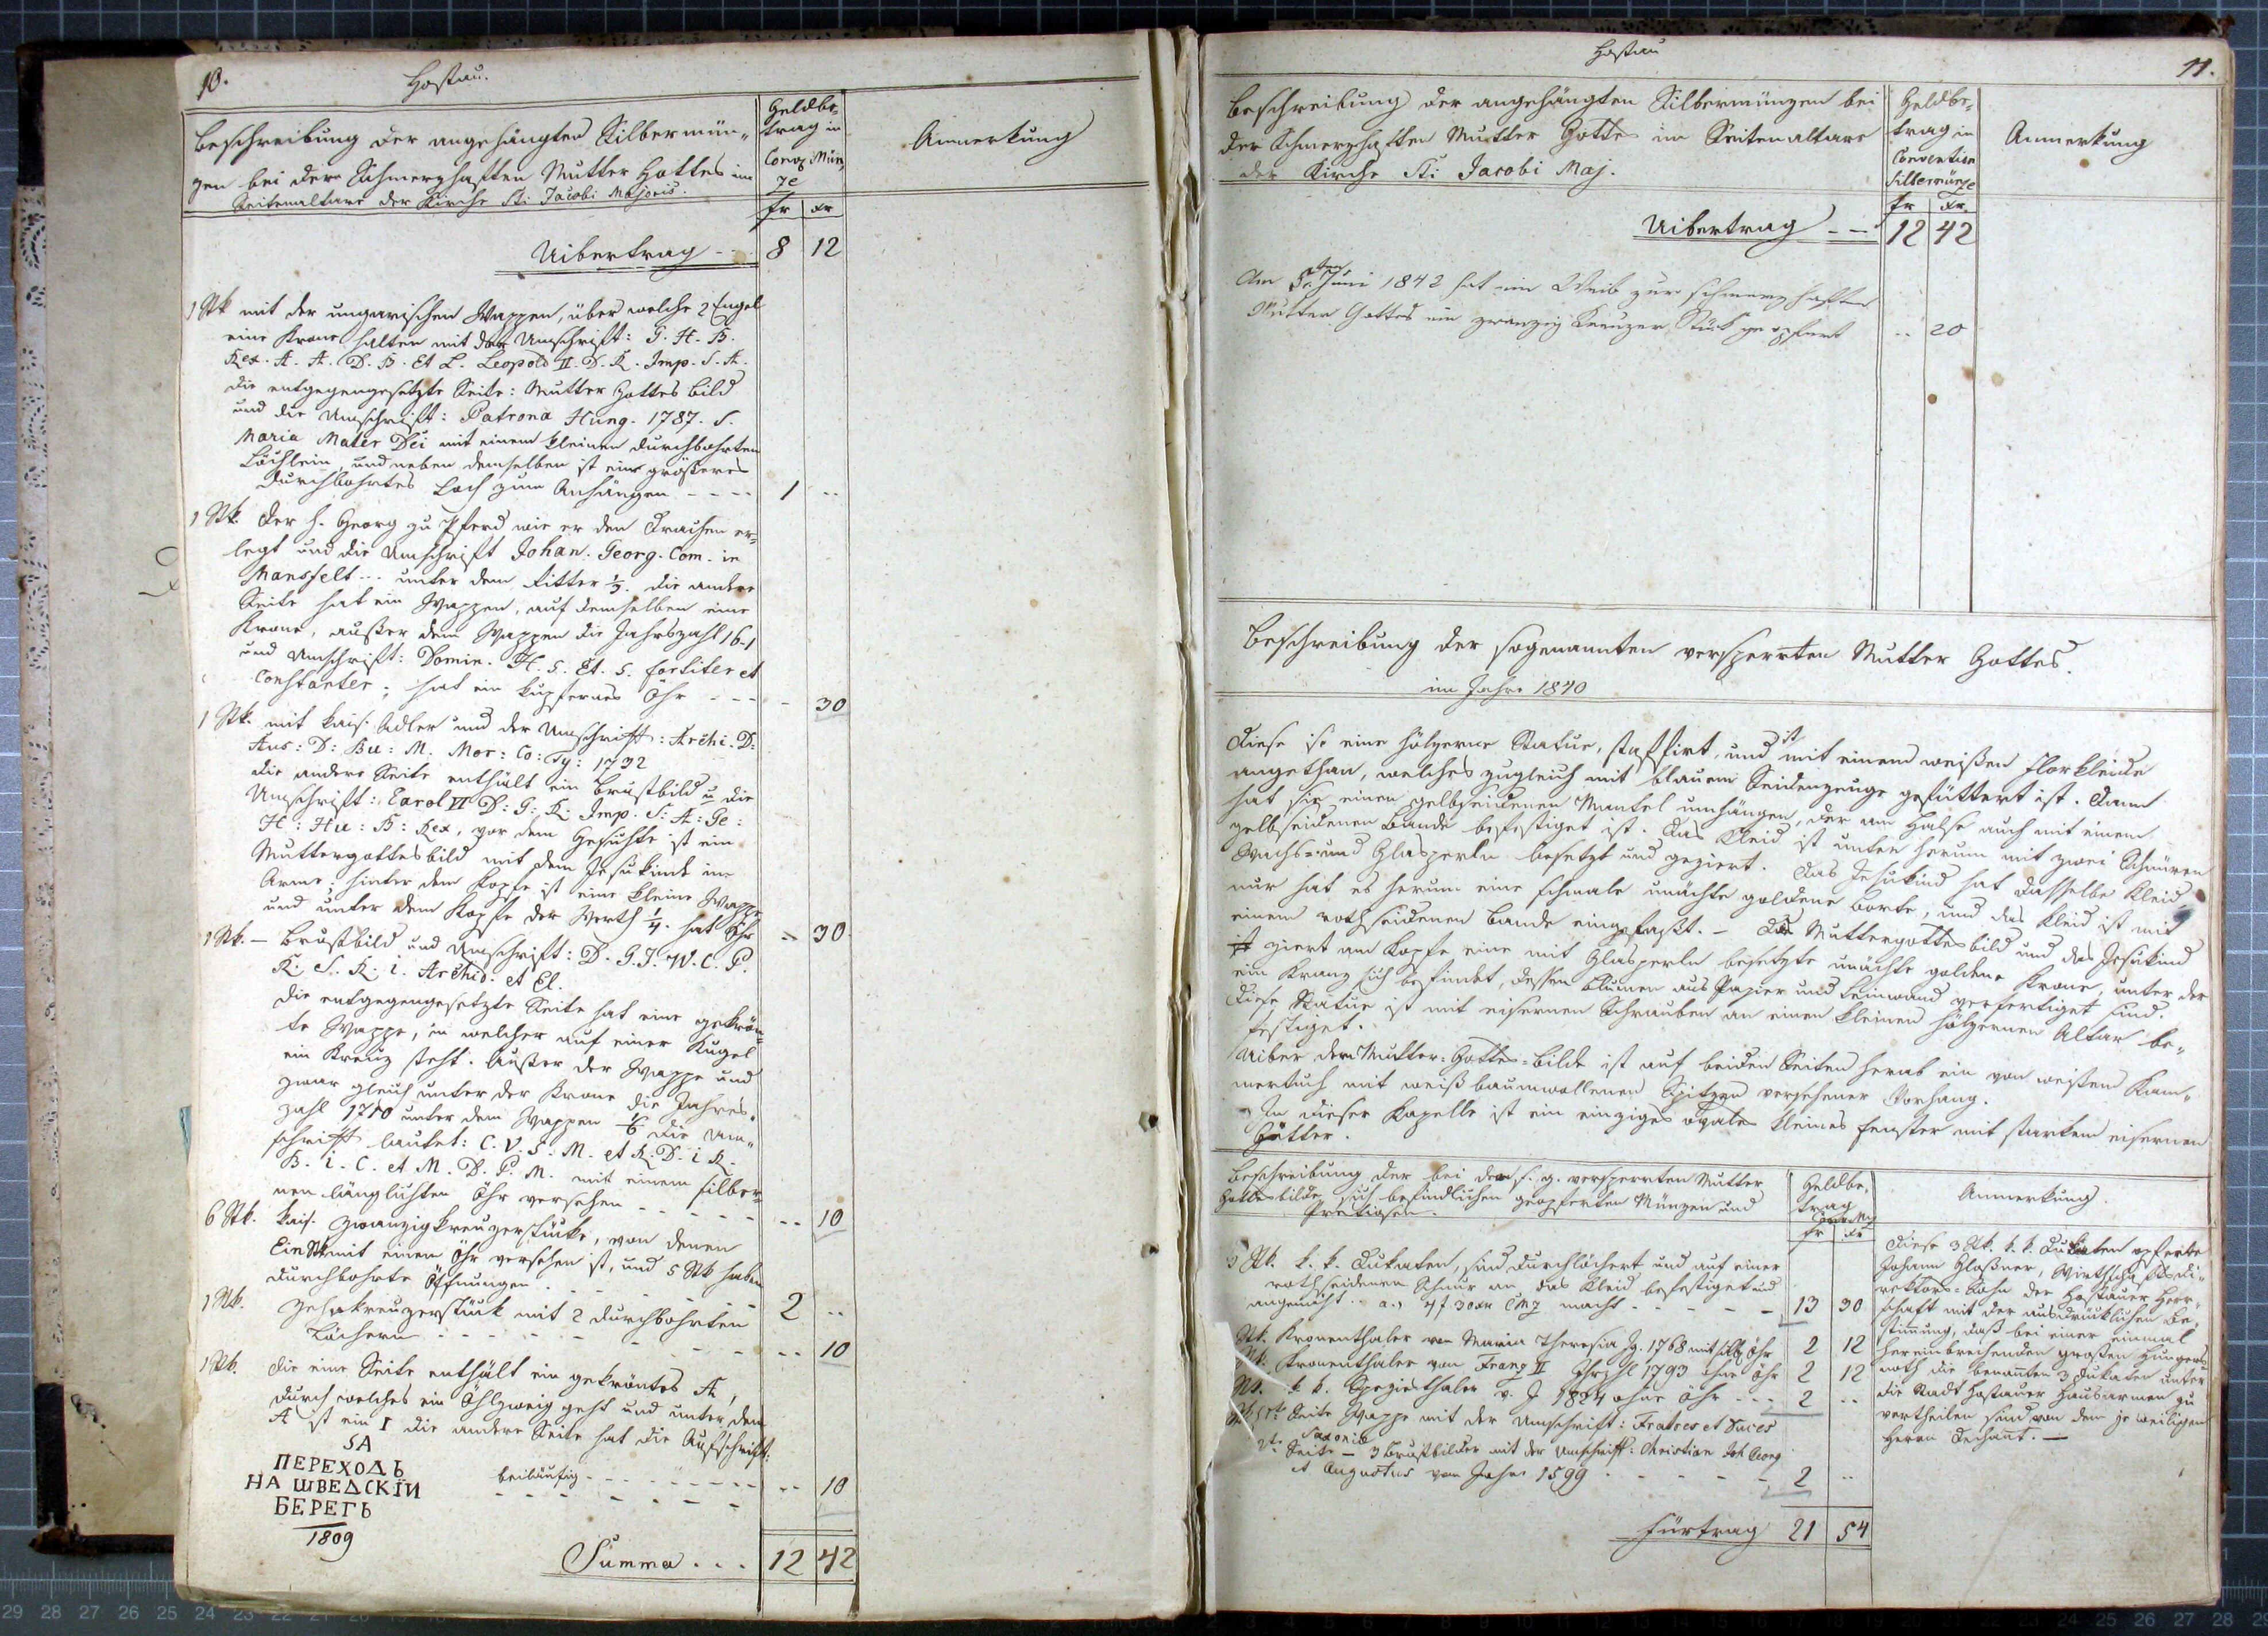 10.
Hostau.
Beschreibung der angehängten Silbermün„
zen bei der Schmerzhaften Mutter Gottes im
Seitenaltare der Kirche Sti Jacobi Majoris.
Geldbe„
trag in
Conv. Mün„
ze
fr xr
Anmerkung
Uibertrag - - 8 12
1 Stk mit der ungarischen Wappen, über welche 2 Engel
eine Krone halten mit der Umschrift: G. H. B.
Rex. A. A. D. B. Et L. Leopold II. D. R. Imp. S. A.
die entgegengesetzte Seite: Mutter Gottes Bild
und die Umschrift: Patrona Hung. 1787. S.
Maria Mater Dei mit einem kleinen durchbohrten
Löchlein, und neben demselben ist ein größeres
durchbohrtes Loch zum Anhängen - - - - 1 ..
1 Stk. der h. Georg zu Pferd wie er den Drachen er„
legt und die Umschrift Johan. Georg. Com. in
Mansfelt... unter dem Ritter 1/3. die andere
Seite hat ein Wappen, auf demselben eine
Krone, außer dem Wappen die Jahrszahl 16-1
und Umschrift: Domin. H. S. Et. S. fortiter et
constanter; hat ein kupfernes Öhr - - - - 30
1 Stk. mit kais. Adler und der Umschrift: Archi. D:
Aus: D: Bu: M. Mor: Co: Ty: 1732
die andere Seite enthält ein Brustbild u die
Umschrift: Carol VI D: G: R: Imp. S: A: Ge:
H: Hu: B: Rex, vor dem Gesichte ist ein
Muttergottesbild mit dem Jesukinde im
Arme; hinter dem Kopfe ist eine kleine Wappe
und unter dem Kopfe der Werth 1/4. hat Öhr - 30.
1 Stk. – Brustbild und Umschrift: D. G. J. W. C. P.
R. S. R. i. Archid. et El.
die entgegengesetzte Seite hat eine gekrön„
te Wappe, in welcher auf einer Kugel
ein Kreuz steht. Außer der Wappe und
zwar gleich unter der Krone die Jahres„
zahl 1710 unter dem Wappen 1/6 die Um„
schrift lautet: C. V. S. M. et R. D. i R.
B. i. C. et M. D. P. M. mit einem silber„
nen länglichten Öhr versehen - - - - - .. 10
6 Stk. kais. Zwanzigkreuzerstücke, von denen
Ein Stk mit einem Öhr versehen ist, und 5 Stk haben
durchbohrte Öffnungen - - - - - - 2 ..
1 Stk. Zehnkreuzerstück mit 2 durchbohrten
Löchern - - - - - - - - .. 10
1 Stk. die eine Seite enthält ein gekröntes A,
durch welches ein Öhlzweig geht und unter dem
A ist ein I die andere Seite hat die Aufschrift:
SA
ПЕРЕХОДЬ
НА ШВЕДСКЇИ beiläufig - - - - - - .. 10
БЕРЕГЬ
1809
Summa . . . 12 42
Hostau
11.
Beschreibung der angehängten Silbermünzen bei
der Schmerzhaften Mutter Gottes im Seitenaltare
der Kirche Sti Jacobi Maj.
Geldbe„
trag in
Convention
Silbermünze
fr xr.
Anmerkung
Uibertrag - - 12 42
Am 5ten Juni 1842 hat ein Weib zur schmerzhaften
Mutter Gottes ein zwanzig Kreuzer Stück geopfert .. 20
Beschreibung der sogenannten versperrten Mutter Gottes.
im Jahre 1840
Diese ist eine hölzerne Statue, staffirt, und ist mit einem weißen Florkleide
angethan, welches zugleich mit blauem Seidenzeuge gefüttert ist. Dann
hat sie einen gelbseidenen Mantel umhängen, der am Halse auch mit einem
gelbseidenen Bande befestiget ist. Das Kleid ist unten herum mit zwei Schnüren
Wachs- und Glasperln besetzt und geziert. Das Jesukind hat dasselbe Kleid
nur hat es herum eine schmale unächte goldene Borte, und das Kleid ist mit
einem rothseidenen Bande eingefaßt. – Das Muttergottesbild und das Jesukind
ist ziert am Kopfe eine mit Glasperln besetzte unächte goldene Krone, unter der
ein Kranz sich befindet, dessen Blumen aus Papier und Leinwand verfertiget sind.
Diese Statue ist mit eisernen Schrauben an einen kleinen hölzernen Altar be„
festiget.
Uiber dem Mutter-Gottes-Bilde ist auf beiden Seiten herab ein von weißem Kam„
mertuch mit weiß baumwollenen Spitzen versehener Vorhang.
In dieser Kapelle ist ein einziges ovales kleines Fenster mit starkem eisernen
Gitter.
Beschreibung der bei dem s. g. versperrten Mutter
Gottesbilde sich befindlichen geopferten Münzen und
Pretiosen.
Geldbe„
trag
Conv. Mz
fr xr
Anmerkung.
3 Stk. k. k. Dukaten, sind durchlöchert und auf einer
rothseidenen Schnur an das Kleid befestiget und
angenäht. – a., 4 f. 30 xr CMz macht - - - - 13 30
Stk. Kronenthaler von Maria Theresia J. 1768 mit silb. Öhr 2 12
Stk. Kronenthaler von Franz II Jhrzhl 1793 ohne Öhr 2 12
Stk. k. k. Speziesthaler v. J 1824 ohne Öhr - - - 2 ..
Stk. 1te Seite Wappe mit der Umschrift: Fratres et Duces
Saxonia
2te Seite – 3 Brustbilder mit der Umschrift: Christian Joh Georg
et Augustus vom Jahre 1599 - - - - - - 2 ..
Fürtrag 21 54
Diese 3 Stk. k. k. Dukaten opferte
Johann Gloßner, Wirthschaftsdi„
rektors-Sohn der Hostauer Herr„
schaft mit der ausdrücklichen Be„
stimmung, daß bei einer einmal
hereinbrechenden großen Hungers„
noth die benannten 3 Dukaten unter
die Stadt Hostauer Hausarmen zu
vertheilen sind von dem jeweiligen
Herrn Dechant. –